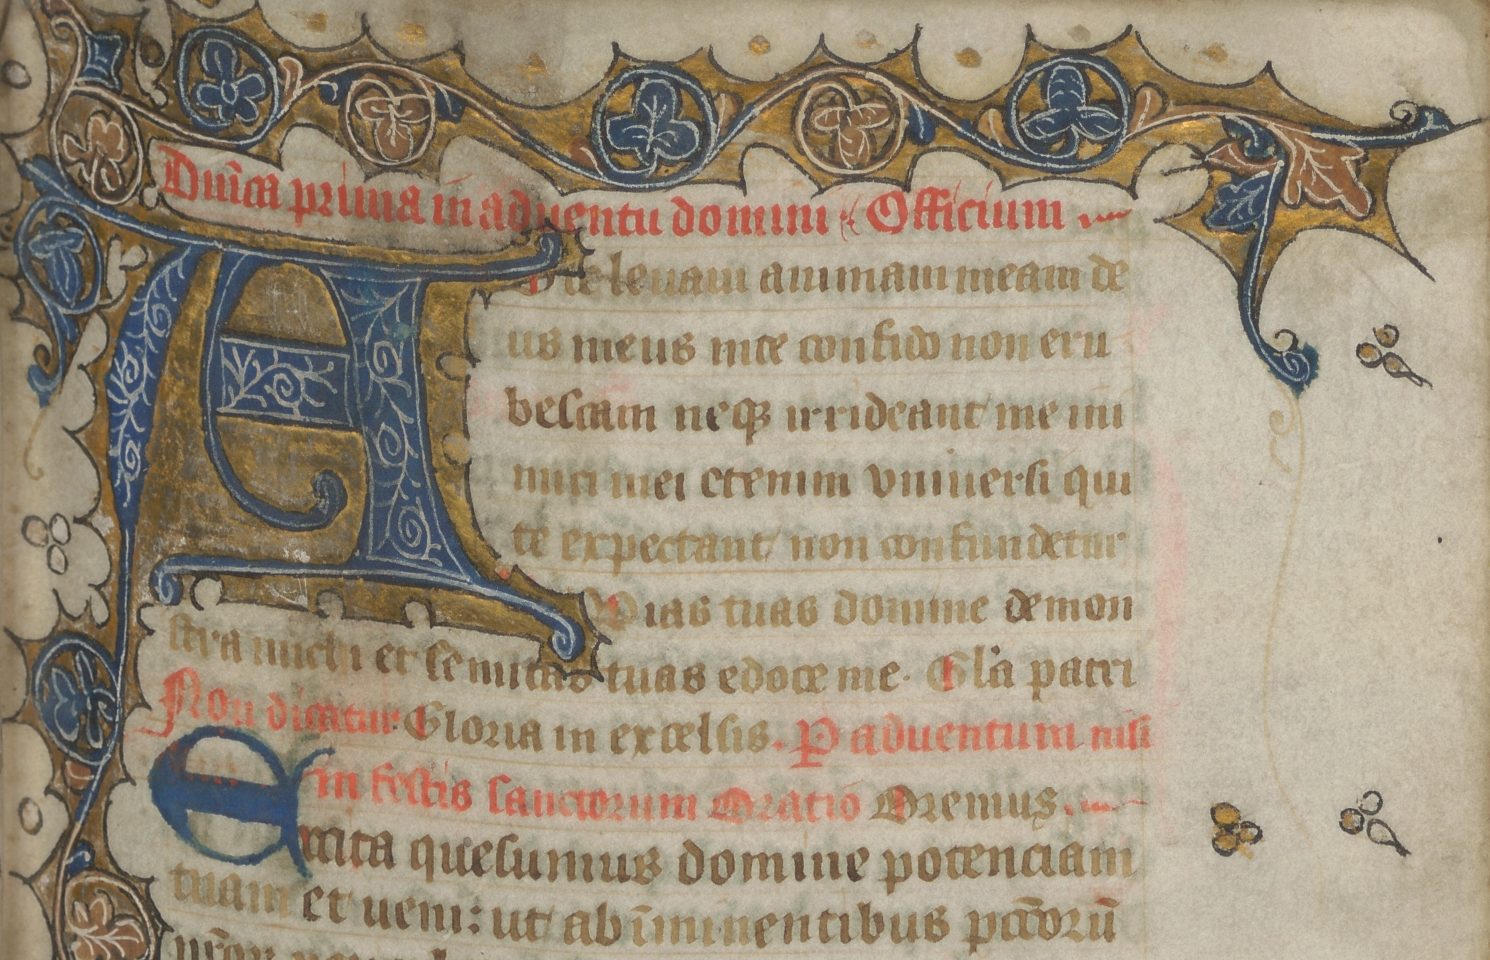 Dnica prima in aduentu domini Officium
A D te leuaui animam meam de
us meus in te confido non eru
bescam neqꝫ irrideant me ini
mici mei etenim vniuersi qui
te expectant non confundetur
Vias tuas domine demon
stra michi et semitas tuas edoce me. Gl'a patri
Non dicatur Gloria in excelsis. P aduentum nisi
in festis sanctorum Oratio Oremus.
Excita quesumus domine potenciam
tuam et ueni: ut ab īminentibus pccōrū